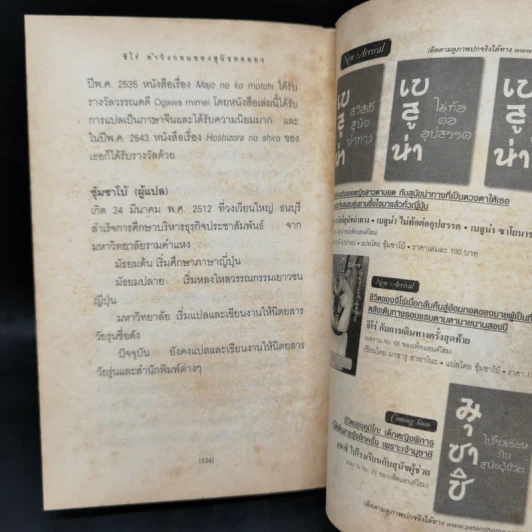 จิโร่ คำวิงวอนของสุนัขทดลอง
ปีพ.ศ. 2535 หนังสือเรื่อง Majo no ko motchi ได้รับ
รางวัลวรรณคดี Ogawa mimei โดยหนังสือเล่มนี้ได้รับ
การแปลเป็นภาษาจีนและได้รับความนิยมมาก และ
ในปีพ.ศ. 2543 หนังสือเรื่อง Hoshizora no shiro ของ
เธอก็ได้รับรางวัลด้วย
ซุ้มซาโบ้ (ผู้แปล)
เกิด 24 มีนาคม พ.ศ. 2512 ที่วงเวียนใหญ่ ธนบุรี
สำเร็จการศึกษาบริหารธุรกิจประชาสัมพันธ์ จาก
มหาวิทยาลัยรามคำแหง
มัธยมต้น เริ่มศึกษาภาษาญี่ปุ่น
มัธยมปลาย เริ่มหลงใหลวรรณกรรมเยาวชน
ญี่ปุ่น
มหาวิทยาลัย เริ่มแปลและเขียนงานให้นิตยสาร
วัยรุ่นชื่อดัง
ปัจจุบัน ยังคงแปลและเขียนงานให้นิตยสาร
วัยรุ่นและสำนักพิมพ์ต่างๆ
[134]
ติดตามดูภาพปกจริงได้ทาง www.
New Arrival
เบลูน่า
สวัสดี
สุนัข
นำทาง
เบลูน่า
ไม่ท้อ
ต่อ
อุปสรรค
เบลูน่า
กับสุนัขนำทางที่เป็นดวงตาให้เธอ
เบลูน่า ไม่ท้อต่ออุปสรรค • เบลูน่า ซาโยนา
แปลโดย ซุ้มซาโบ้ • ราคาเล่มละ 100 บาท
New Arrival
จิโร่ กับการเดินทางครั้งสุดท้าย
แปลโดย ซุ้มซาโบ้ • ราคา
Coming Soon
ชีวิตของคุมิโกะ เด็กหญิงพิการ
มุซาชิ ไปโรงเรียนกับสุนัขผู้ช่วย
มุซาชิ
ไปโรงเรียน
กับ
สุนัขผู้ช่วย
ติดตามดูภาพปกจริงได้ทาง www.petandhome